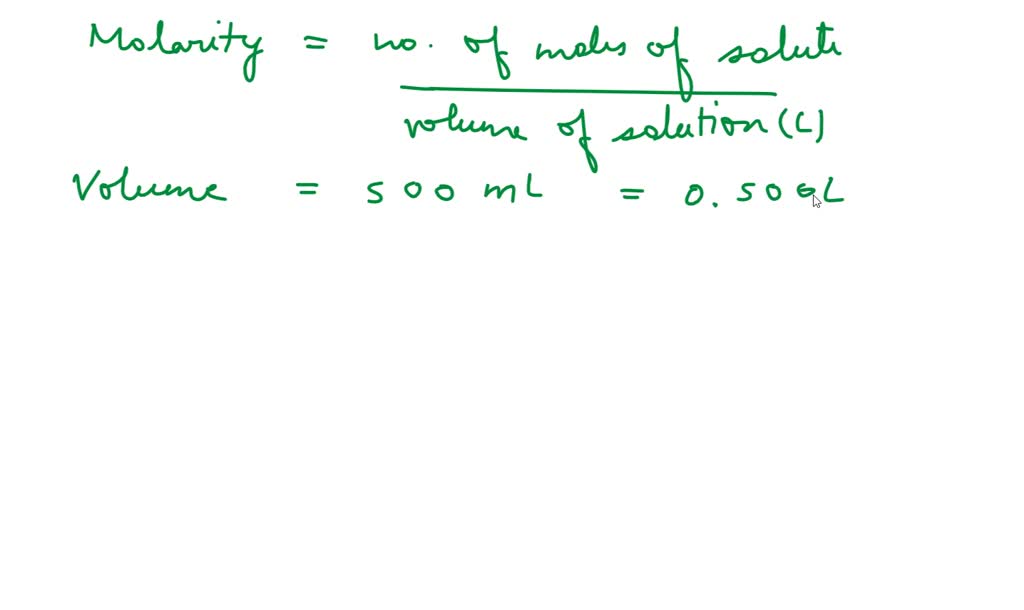 Molarity = no. of moles of solute
volume of solution (L)
Volume = 500 mL = 0.500L